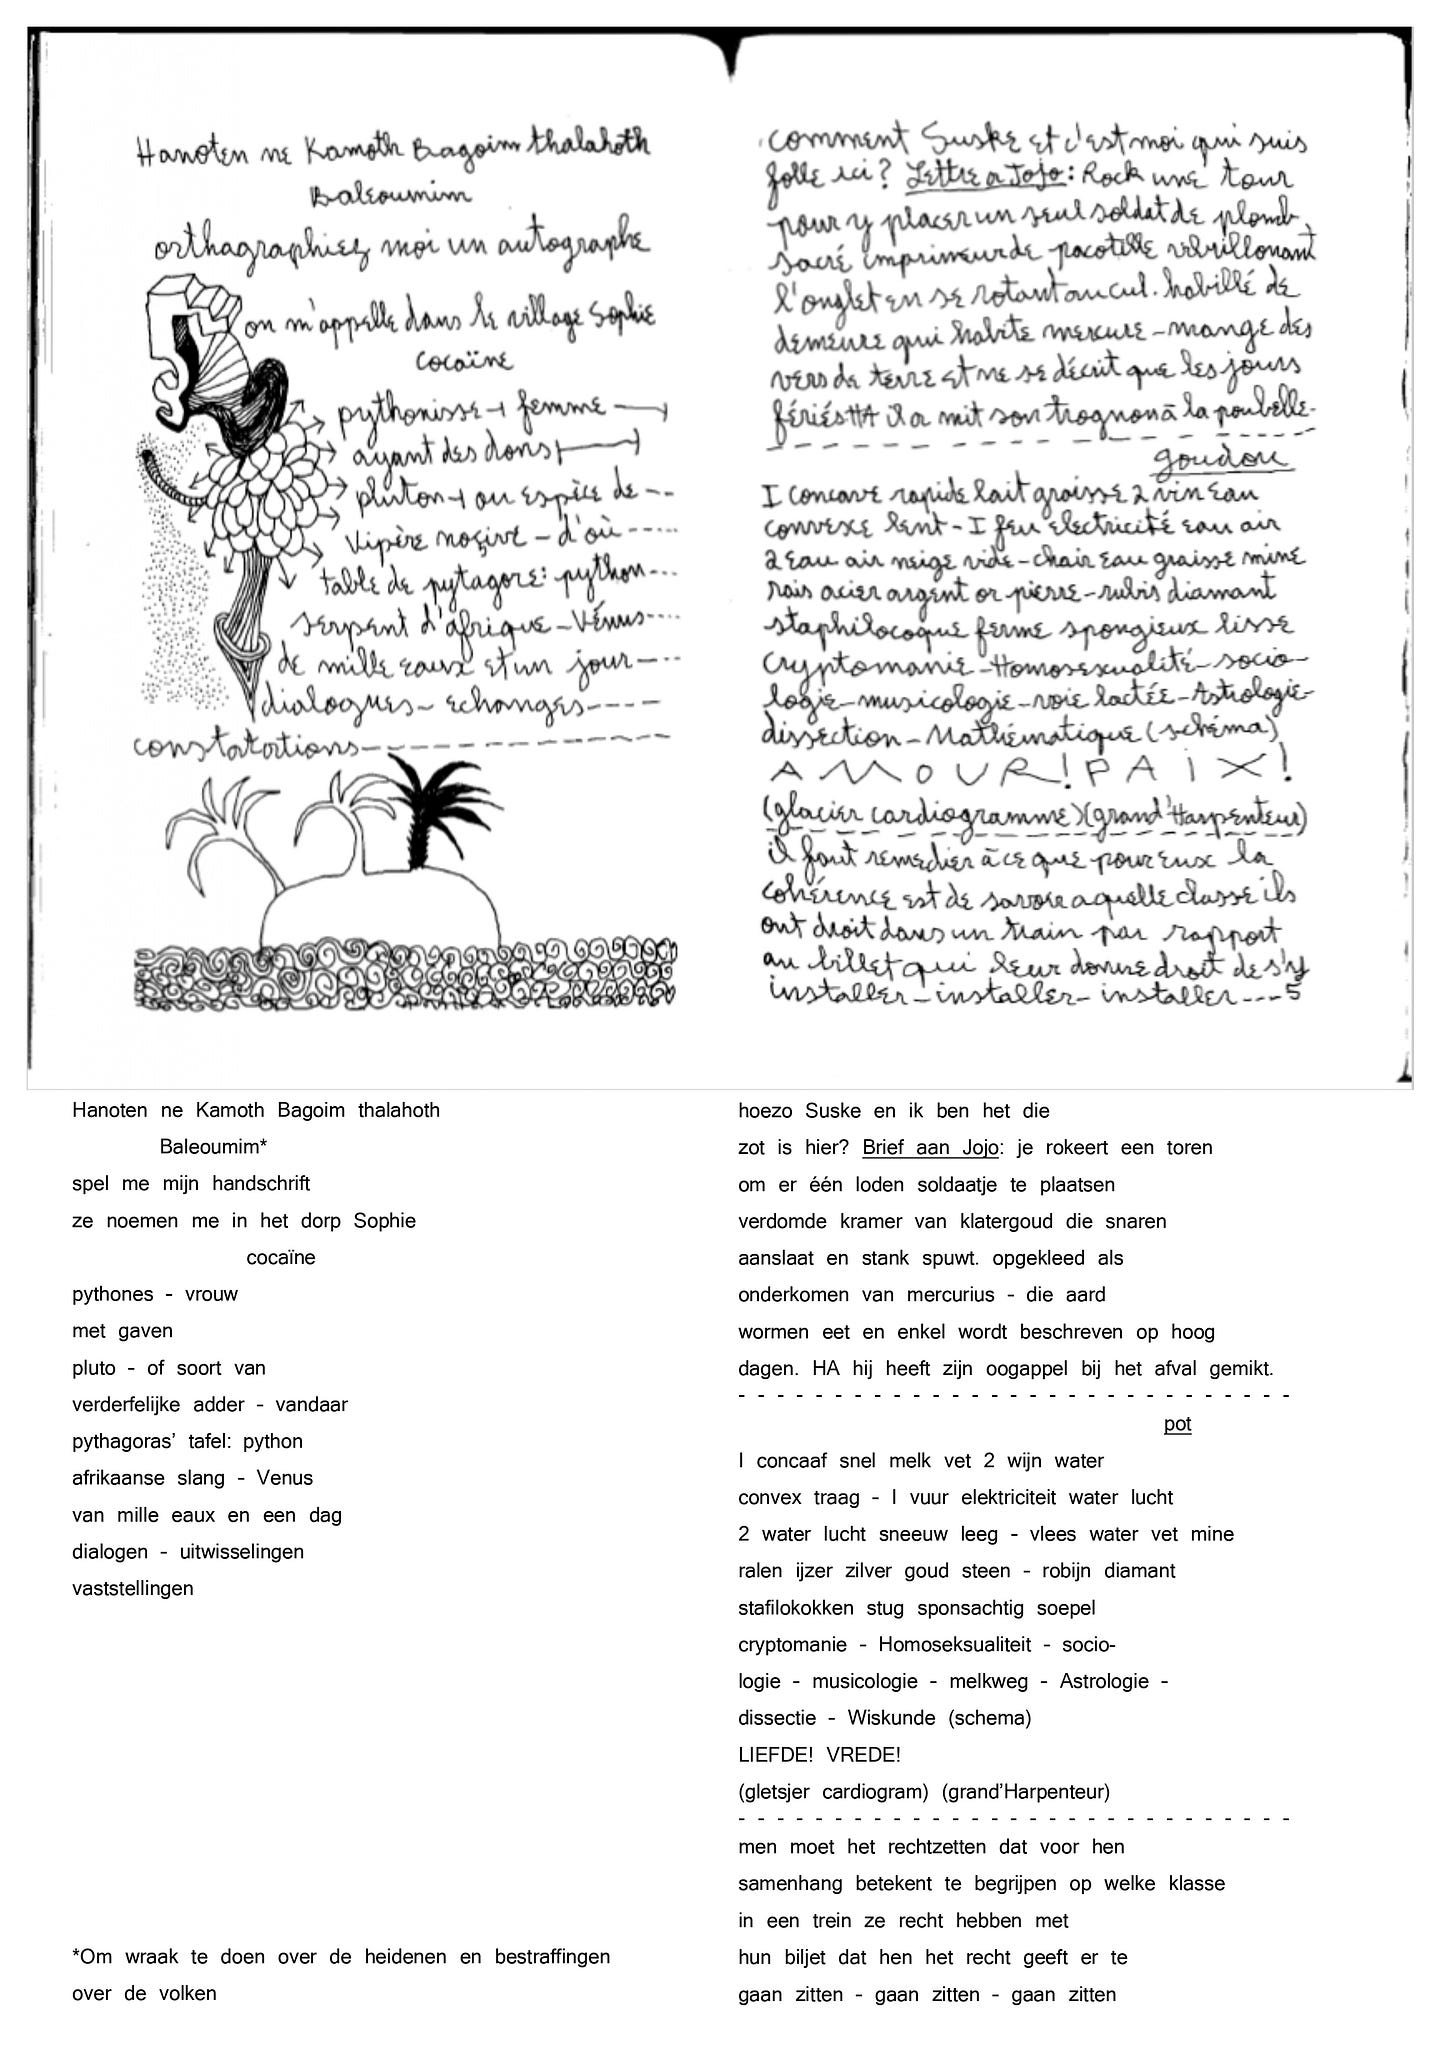 Hanoten ne Kamoth Bagoim thalahoth
Baleoumim
orthagraphiez moi un autographe
on m'appelle dans le village Sophie
cocaïne
pythonisse → femme →
ayant des dons →
pluton → ou espèce de --
vipère noçive - d'où ----
table de pytagore: python---
serpent d'afrique - Vénus----
de mille eaux et un jour ----
dialogues - echanges ----
constatations - - - - - - - - - -
comment Suske et c'est moi qui suis
folle ici? Lettre a Jojo: Rock une tour
pour y placer un seul soldat de plomb,
sacré imprimeur de pacotille
l'onglet en se rotant au cul. habillé de
demeure qui habite mercure - mange des
vers de terre et ne se décrit que les jours
fériés HA il a mit son trognon à la poubelle-
goudou
I concave rapide lait graisse 2 vin eau
convexe lent - I feu electricité eau air
2 eau air neige vide - chair eau graisse miné
rais acier argent or pierre - rubis diamant
staphilocoque ferme spongieux lisse
cryptomanie - Homosexualité - socio-
logie - musicologie - voie lactée - Astrologie-
dissection - Mathématique (schéma)
AMOUR! PAIX!
(glacier cardiogramme) (grand'Harpenteur)
il faut remedier à ce que pour eux la
cohérence est de savoir a quelle classe ils
ont droit dans un train par rapport
au billet qui leur donne droit de s'y
installer - installer - installer ---- 5
Hanoten ne Kamoth Bagoim thalahoth
Baleoumim*
spel me mijn handschrift
ze noemen me in het dorp Sophie
cocaïne
pythones - vrouw
met gaven
pluto - of soort van
verderfelijke adder - vandaar
pythagoras' tafel: python
afrikaanse slang - Venus
van mille eaux en een dag
dialogen - uitwisselingen
vaststellingen
*Om wraak te doen over de heidenen en bestraffingen
over de volken
hoezo Suske en ik ben het die
zot is hier? Brief aan Jojo: je rokeert een toren
om er één loden soldaatje te plaatsen
verdomde kramer van klatergoud die snaren
aanslaat en stank spuwt. opgekleed als
onderkomen van mercurius - die aard
wormen eet en enkel wordt beschreven op hoog
dagen. HA hij heeft zijn oogappel bij het afval gemikt.
- - - - - - - - - - - - - - - - - - - - - - - - - - - - -
pot
I concaaf snel melk vet 2 wijn water
convex traag - I vuur elektriciteit water lucht
2 water lucht sneeuw leeg - vlees water vet mine
ralen ijzer zilver goud steen - robijn diamant
stafilokokken stug sponsachtig soepel
cryptomanie - Homoseksualiteit - socio-
logie - musicologie - melkweg - Astrologie -
dissectie - Wiskunde (schema)
LIEFDE! VREDE!
(gletsjer cardiogram) (grand'Harpenteur)
- - - - - - - - - - - - - - - - - - - - - - - - - - - - -
men moet het rechtzetten dat voor hen
samenhang betekent te begrijpen op welke klasse
in een trein ze recht hebben met
hun biljet dat hen het recht geeft er te
gaan zitten - gaan zitten - gaan zitten